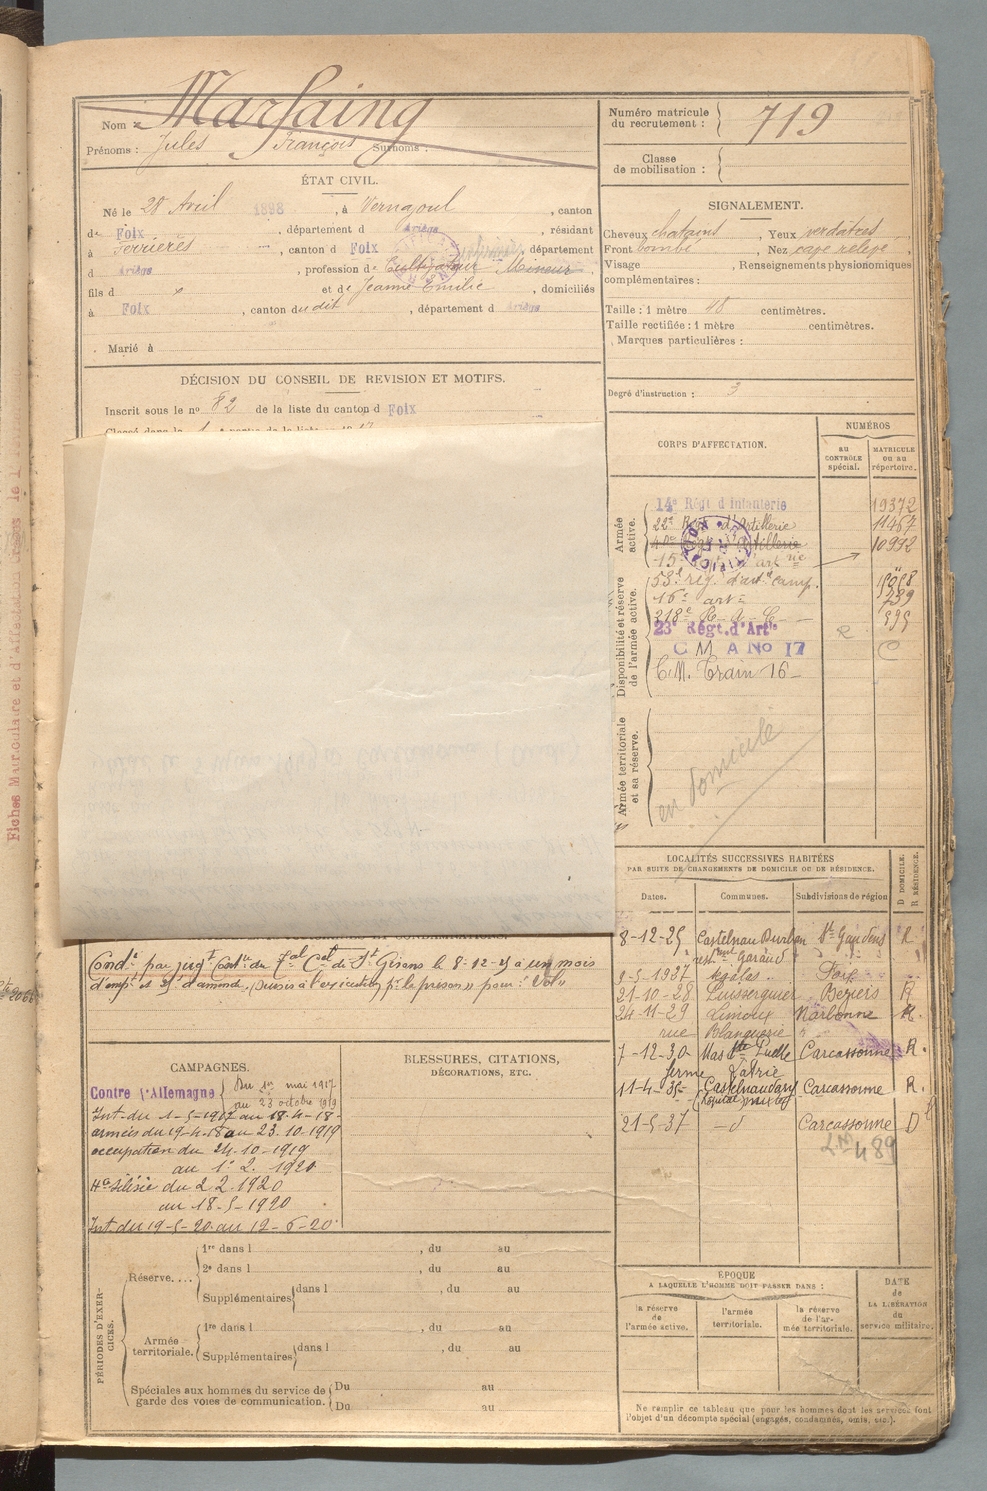 Nom : Marfaing
Prénoms : Jules François Surnoms :
Numéro matricule du recrutement : 719
Classe de mobilisation :
ÉTAT CIVIL.
Né le 28 Avril 1898, à Vernajoul, canton
de Foix, département d Ariège, résidant
à Ferrières, canton d Foix, département
d Ariège, profession de Cultivateur Mineur
fils d et de Jeanne Emilie, domiciliés
à Foix, canton du dit, département d Ariège
Marié à
DÉCISION DU CONSEIL DE REVISION ET MOTIFS.
Inscrit sous le no 82 de la liste du canton d Foix
SIGNALEMENT.
Cheveux chatains, Yeux verdâtres
Front bombé, Nez cave relevé,
Visage, Renseignements physionomiques
complémentaires :
Taille : 1 mètre 48 centimètres.
Taille rectifiée : 1 mètre centimètres.
Marques particulières :
Degré d'instruction : 3
CORPS D'AFFECTATION.
NUMÉROS
au CONTRÔLE spécial.
MATRICULE ou au répertoire.
Armée active.
14e Régt d'infanterie 19372
22e d'Artillerie 11467
Artillerie 10992
15e
Disponibilité et réserve de l'armée active.
53e rég. d'art camp.
16e art
318e R. A. C. 595
23e Régt. d'Artie
C M A No 17
C.M. Train 16
Armée territoriale et sa réserve.
en domicile
Fiches Matriculaire et d'Affectation
LOCALITÉS SUCCESSIVES HABITÉES
PAR SUITE DE CHANGEMENTS DE DOMICILE OU DE RÉSIDENCE.
Dates. Communes. Subdivisions de région D DOMICILE. R RÉSIDENCE.
8-12-25 Castelnau Durban St Gaudens R
Garaud
9-5-1927 Foix
21-10-28 Puisserguier Béziers R
24-11-29 Limoux Narbonne R.
rue Blanquerie
7-12-30 Mas Stes Puelles Carcassonne R.
ferme
11-4-35 Castelnaudary Carcassonne R.
21-5-37 -d Carcassonne D
489
Condé par jugt Contre du Tal Cel de St Girons le 8-12-25 à un mois
d'empt et d'amende, (sursis à l'exécution pr la prison) pour : "Vol"
CAMPAGNES.
Contre l'Allemagne Du 1er mai 1917
au 23 octobre 1919
Int. du 1-5-1917 au 18-4-18-
armées du 19-4-18 au 23.10-1919
occupation du 24-10-1919
au 1-2.1920
Hte Silésie du 2 2 1920
au 18-5-1920
Int. du 19-5-20 au 12-6-20
BLESSURES, CITATIONS,
DÉCORATIONS, ETC.
PÉRIODES D'EXERCICES.
Réserve....
1re dans l, du au
2e dans l, du au
Supplémentaires dans l, du au
du au
Armée territoriale.
1re dans l, du au
Supplémentaires dans l, du au
du au
Spéciales aux hommes du service de
garde des voies de communication.
Du au
Du au
ÉPOQUE
A LAQUELLE L'HOMME DOIT PASSER DANS :
la réserve de l'armée active.
l'armée territoriale.
la réserve de l'armée territoriale.
DATE
DE
LA LIBÉRATION
du
service militaire.
Ne remplir ce tableau que pour les hommes dont les services font
l'objet d'un décompte spécial (engagés, condamnés, omis, etc.).